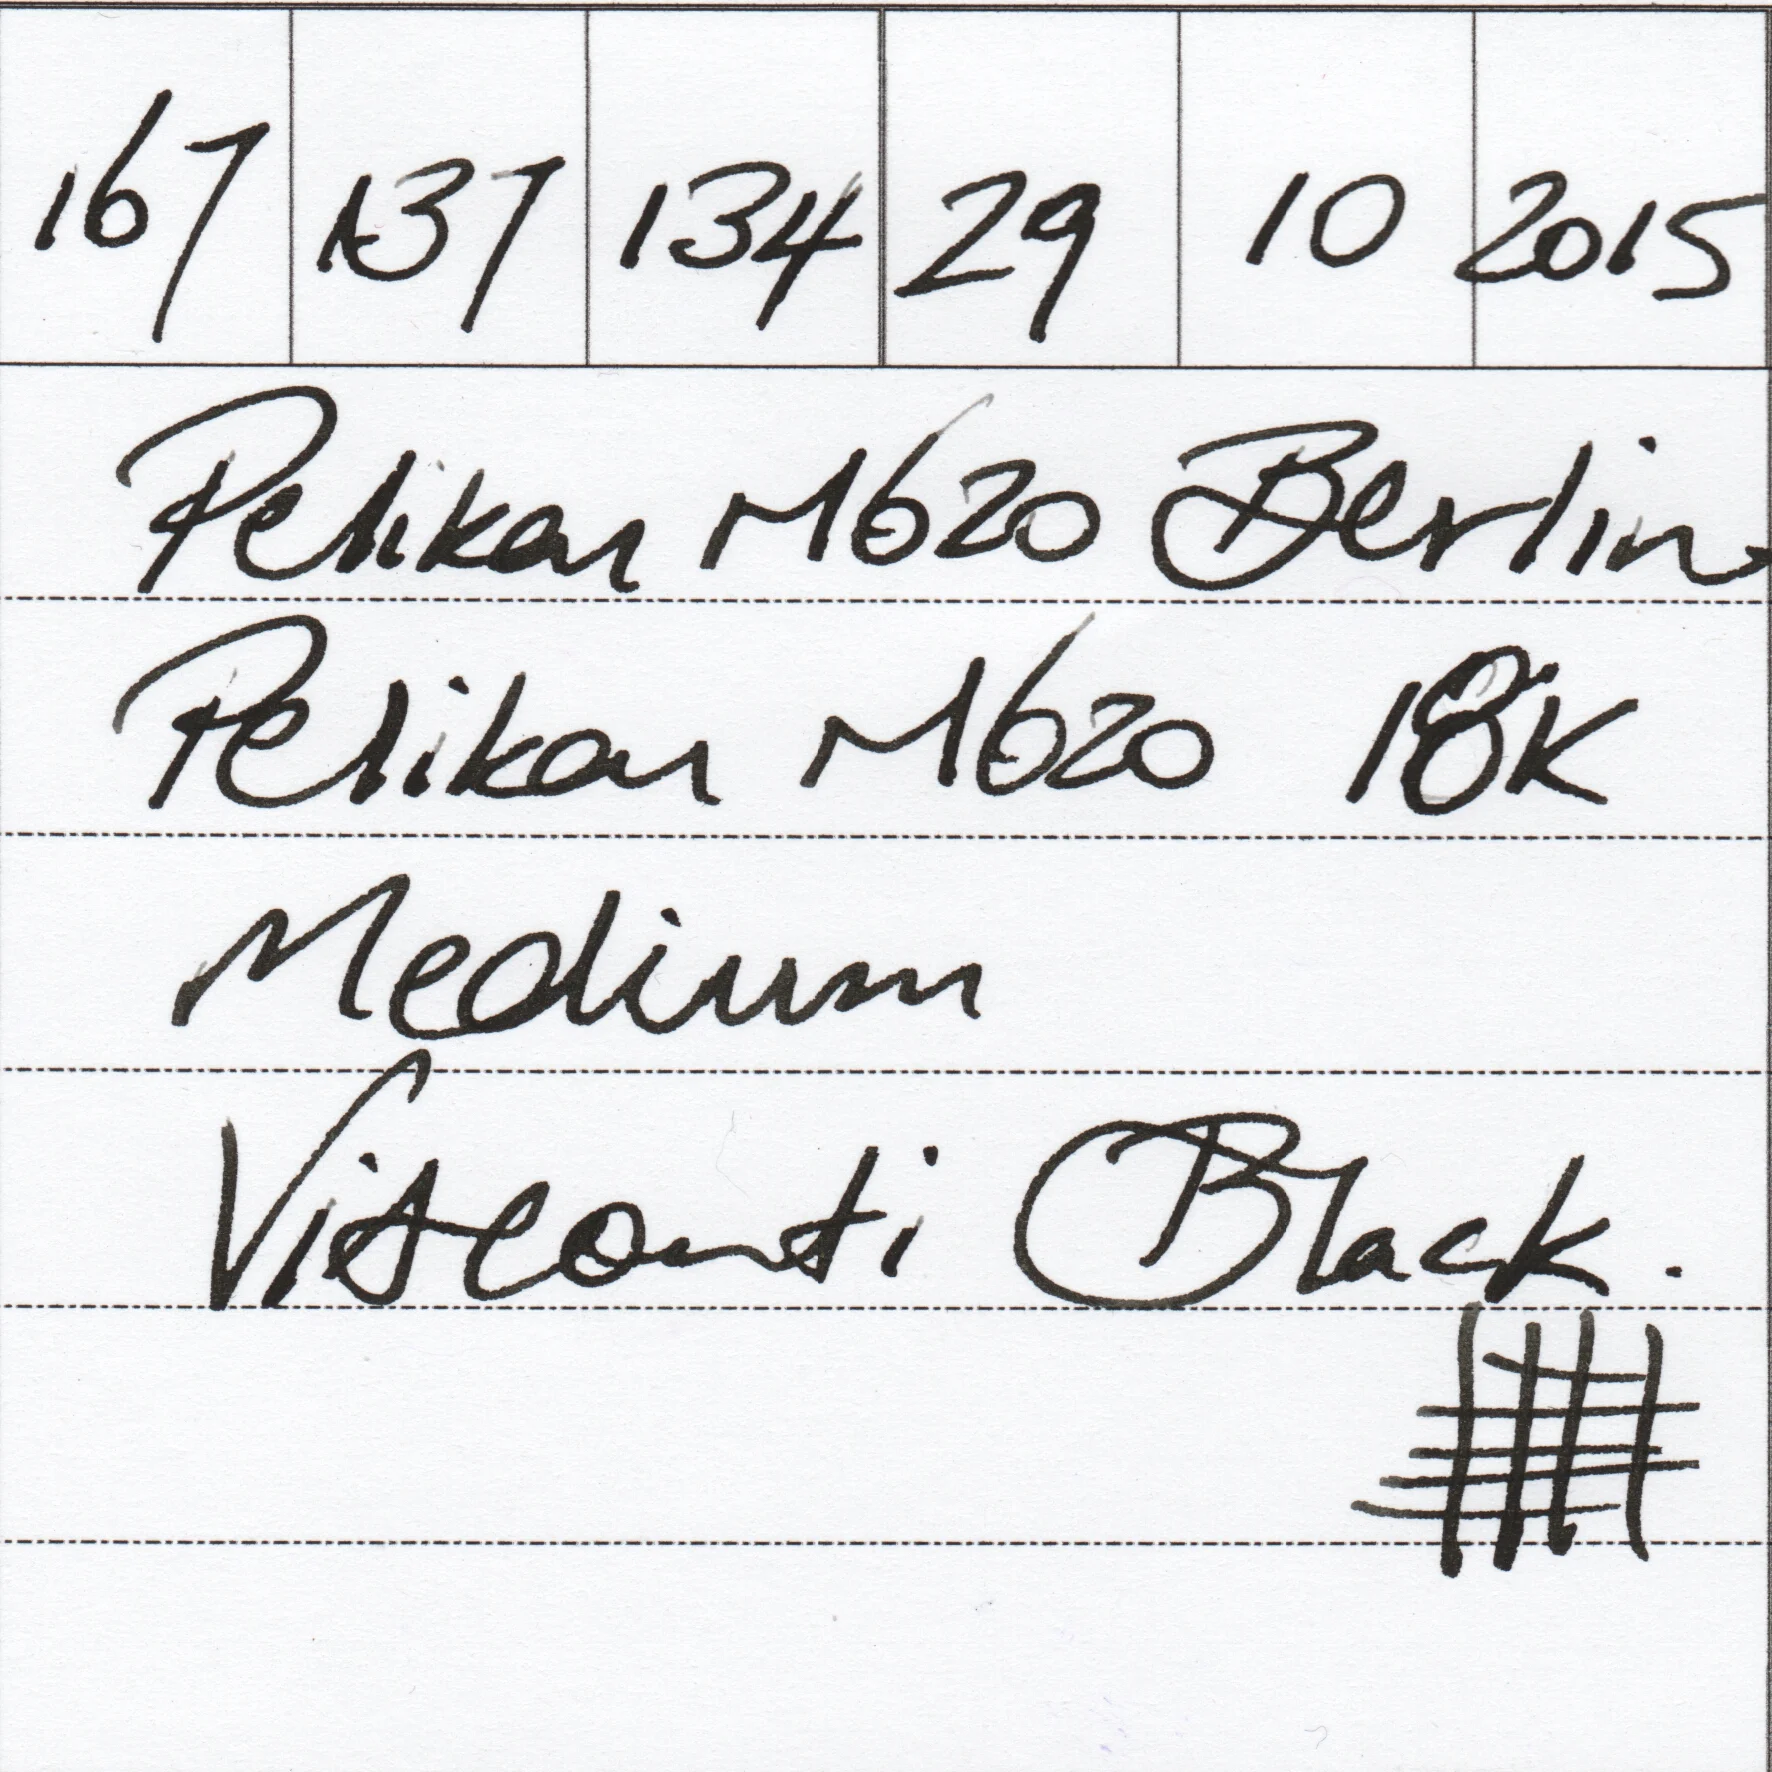 167 137 134 29 10 2015
Pelikan M620 Berlin
Pelikan M620 18K
Medium
Visconti Black.